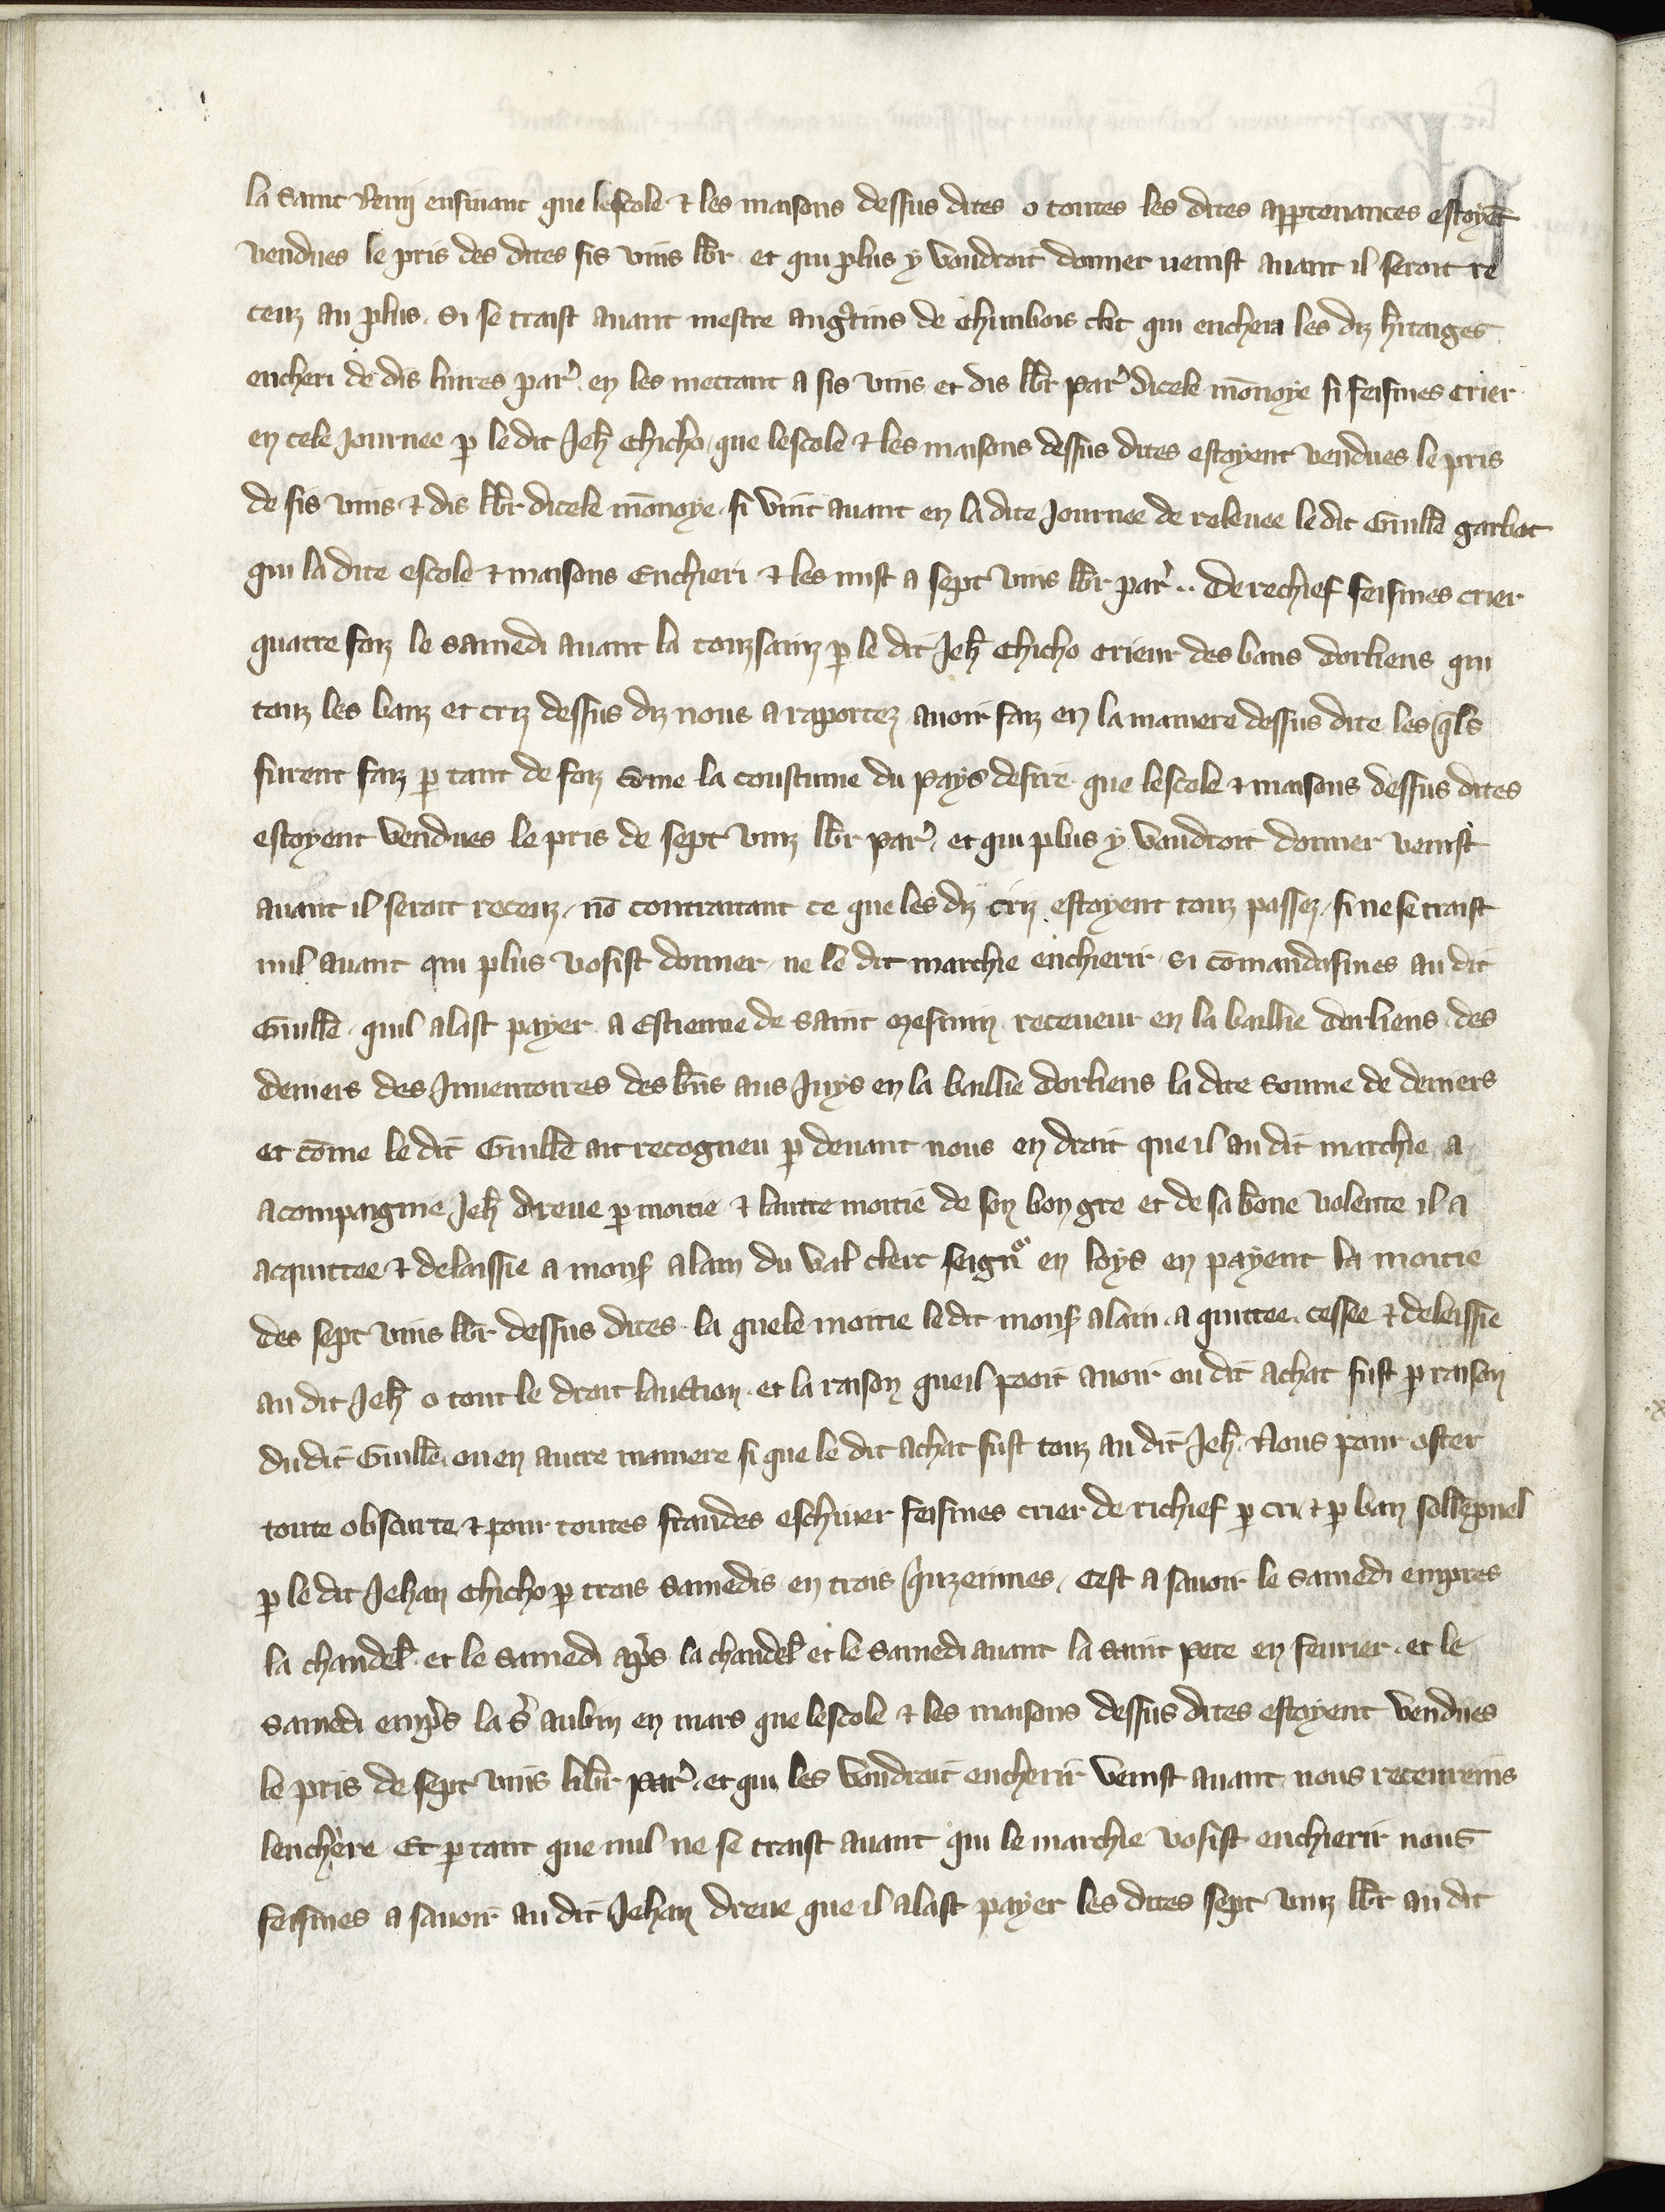 la saint Remj ensiuant que lescole & les maisons dessus dites o toutes les dites apꝑtenances estoyēt
vendues le pris des dites sis vins lb̄r et qui plus y voudroit donner venist auant il seroit re
ceuz au plus. Si se traist auant mestre augꝰtins de Chimbois cl̄t qui encheri les diz h̄itaiges
encheri de dis liures par̾ en les mettant a sis vins et dis lb̄r par̾ dicele mōnoye si feismes crier
en cele Journee ꝑ le dit Jeh̄ Chicho que lescole & les maisons dessus dites estoyent vendues le pris
de sis vins & dis lb̄r dicele mōnoye. si vint auant en la dite Journee de releuee le dit Guill̄e garbot
qui la dite escole & maisons Enchieri & les mist a sept vins lb̄r par̾.. Derechief feismes crier
quatre foiz le samedi auant la touzsainz ꝑ le dit Jeh̄ Chicho crieur des bans dorliens qui
touz les banz et criz dessus diz nous a raportez auoir faiz en la maniere dessus dite les q̄ls
furent faiz ꝑ tant de foiz cōme la coustume du pays desire. que lescole & maisons dessus dites
estoyent vendues le pris de sept vinz lb̄r par̾ et qui plus y vaudroit donner venist
auant il seroit receuz. nō contraitant ce que les diz criz estoyent touz passez. si ne se traist
nul auant qui plus vosist donner ne le dit marchie enchierir. si cōmandasmes au dit
Guill̄e quil alast payer a Estienne de saint Mesmin receueur en la baillie dorliens des
deniers des Inuentoires des b̄ns aus Juys en la baillie dorliens la dite somme de deniers
et cōme le dit Guill̄e ait recogneu ꝑ deuant nous en droit que il au dit marchie a
acompaignie Jeh̄ dreue ꝑ moitie & lautre moitie de son bon gre et de sa bōne volente il a
acquittee & delaissie a mons̄ alain du val clerc seign̄r en loys en payent la moitie
des sept vins lb̄r dessus dites. la quele moitie ledit mons̄ alain a quittee. cessee & delaissie
au dit Jeh̄ o tout le droit lauction. et la raison que il pooit auoir ou dit achat fust ꝑ raison
dudit Guill̄e. ou en autre maniere si que le dit achat fust touz au dit Jeh̄. Nous pour oster
toute obscurte & pour toutes fraudes eschiuer feismes crier de richief ꝑ cri & ꝑ ban sollēpnel
ꝑ le dit Jehan Chicho ꝑ trois samedis en trois q̄nzeinnes. Cest a sauoir le samedi empres
la chandel̄. et le samedi ap̾s la chandel̄ et le samedi auant la saint pere en feurier. et le
samedi emp̾s la s̾ aubin en mars que lescole & les maisons dessus dites estoyent vendues
le pris de sept vins lib̄r par̾. et qui les voudroit encherir venist auant. nous receurēins
lenchere Et ꝑ tant que nul ne se traist auant qui le marchie vosist enchierir nous
feismes a sauoir au dit Jehan dreue que il alast payer les dites sept vinz lb̄r au dit